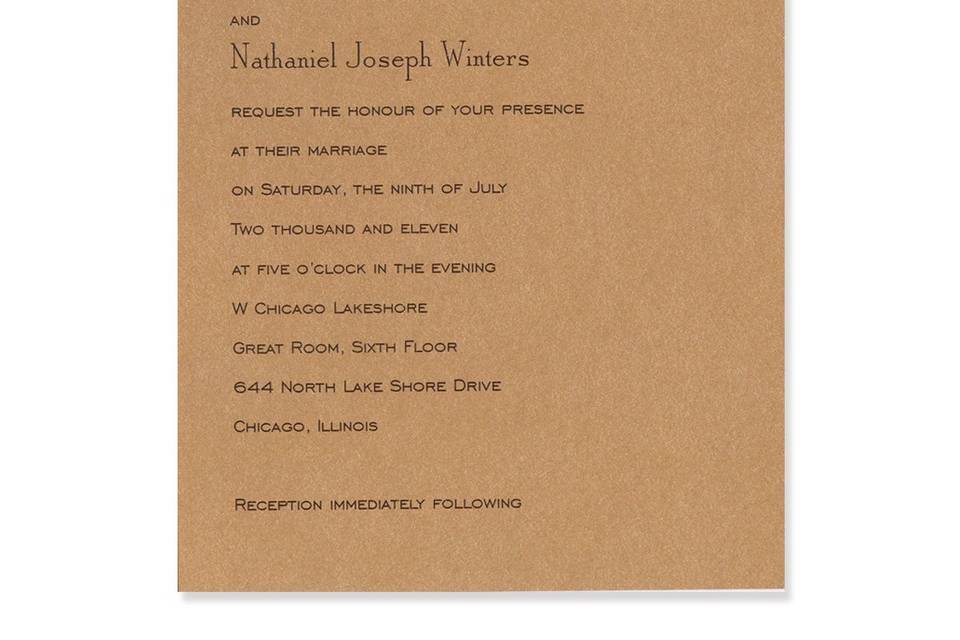 AND
Nathaniel Joseph Winters
REQUEST THE HONOUR OF YOUR PRESENCE
AT THEIR MARRIAGE
ON SATURDAY, THE NINTH OF JULY
TWO THOUSAND AND ELEVEN
AT FIVE O'CLOCK IN THE EVENING
W CHICAGO LAKESHORE
GREAT ROOM, SIXTH FLOOR
644 NORTH LAKE SHORE DRIVE
CHICAGO, ILLINOIS
RECEPTION IMMEDIATELY FOLLOWING